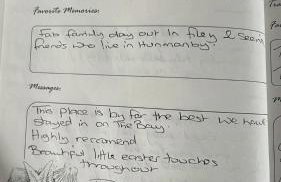 Favorite Memories:
Fab family day out in filey & Seeing
friends who live in Hunmanby.
Messages:
This place is by far the best we have
Stayed in on The Bay.
Highly reccomend
Beautiful little easter touches
throughout